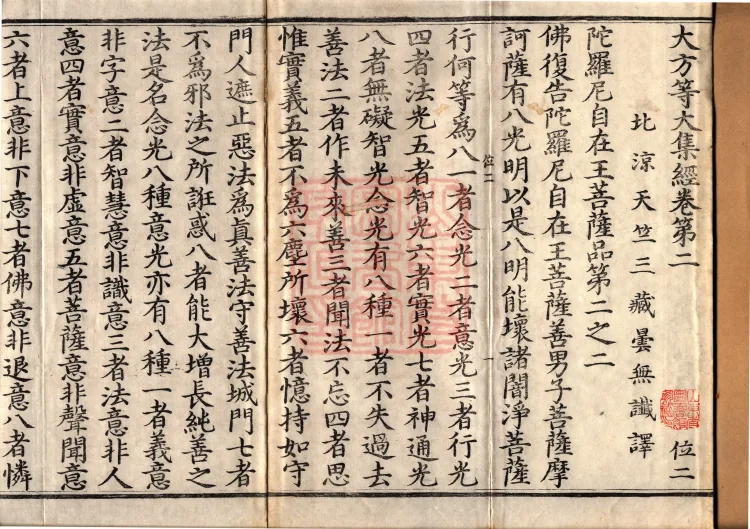 大方等大集經卷第二
位二
北涼天竺三藏曇無讖譯
陀羅尼自在王菩薩品第二之二
佛復告陀羅尼自在王菩薩善男子菩薩摩
訶薩有八光明以是八明能壞諸闇淨菩薩
行何等爲八一者念光二者意光三者行光
四者法光五者智光六者實光七者神通光
八者無礙智光念光有八種一者不失過去
善法二者作未來善三者聞法不忘四者思
惟實義五者不爲六塵所壞六者憶持如守
門人遮止惡法爲真善法守善法城門七者
不爲邪法之所誑惑八者能大增長純善之
法是名念光八種意光亦有八種一者義意
非字意二者智慧意非識意三者法意非人
意四者實意非虛意五者菩薩意非聲聞意
六者上意非下意七者佛意非退意八者憐
位二
一